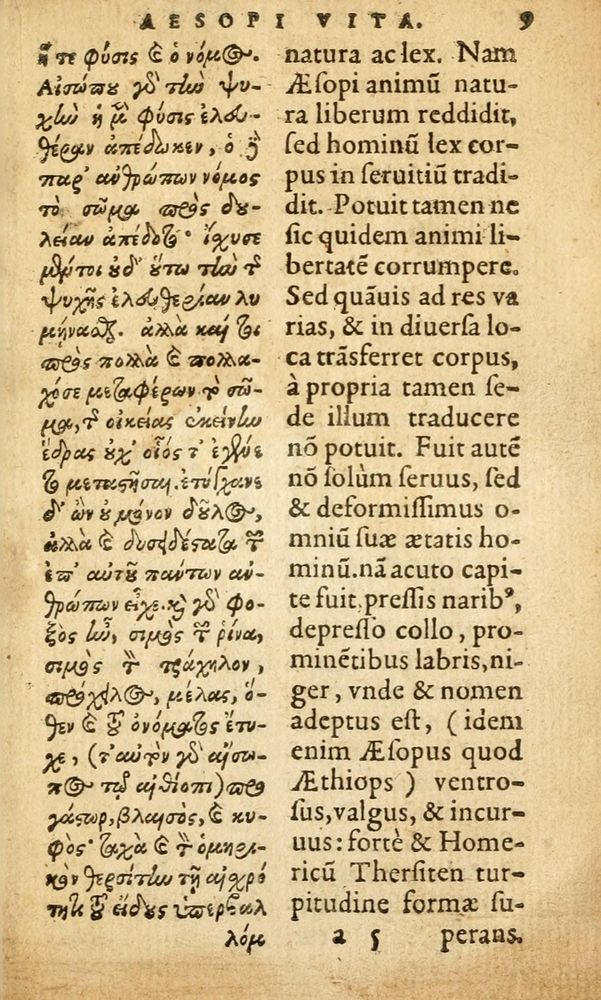 AESOPI VITA. 9
ἥ τε φύσις καὶ ὁ νόμος.
Αἰσώπου γὰρ τὴν ψυ-
χὴν ἡ μὲν φύσις ἐλευ-
θέραν ἀπέδωκεν, ὁ δὲ
παρ' ἀνθρώπων νόμος
τὸ σῶμα πρὸς δου-
λείαν ἀπέδοτο· ἴσχυσε
μέντοι οὐδ' οὕτω τὴν τῆς
ψυχῆς ἐλευθερίαν λυ
μήνασθαι. ἀλλὰ καίτοι
πρὸς πολλὰ καὶ πολλα-
χόσε μεταφέρων τὸ σῶ-
μα, τῆς οἰκείας ἐκείνην
ἕδρας οὐχ' οἷός τ' ἐγένε
το μεταστῆσαι. ἐτύγχανε
δ' ὢν οὐ μόνον δοῦλος,
ἀλλὰ καὶ δυσειδέστατα τῶν
ἐπ' αὐτοῦ πάντων ἀν-
θρώπων εἶχε. καὶ γὰρ φο-
ξὸς ἦν, σιμὸς τὴν ῥίνα,
σιμὸς τὸν τράχηλον,
πρόχειλος, μέλας, ὅ-
θεν καὶ τοῦ ὀνόματος ἔτυ-
χε, (ταὐτὸν γὰρ αἴσω-
πος τῷ αἰθίοπι) προ
γάστωρ, βλαισὸς, καὶ κυ-
φὸς· τάχα καὶ τὸν ὁμηρι-
κὸν θερσίτην τῇ αἰσχρό
τητι τοῦ εἴδους ὑπερβαλ
λόμ
natura ac lex. Nam
Æsopi animū natu-
ra liberum reddidit,
sed hominū lex cor-
pus in seruitiū tradi-
dit. Potuit tamen ne
sic quidem animi li-
bertatē corrumpere.
Sed quāuis ad res va
rias, & in diuersa lo-
ca trāsferret corpus,
à propria tamen se-
de illum traducere
nō potuit. Fuit autē
nō solùm seruus, sed
& deformissimus o-
mniū suæ ætatis ho-
minū. nā acuto capi-
te fuit, pressis narib⁹,
depresso collo, pro-
minētibus labris, ni-
ger, vnde & nomen
adeptus est, (idem
enim Æsopus quod
Æthiops) ventro-
sus, valgus, & incur-
uus: fortè & Home-
ricū Thersiten tur-
pitudine formæ su-
a 5 perans.